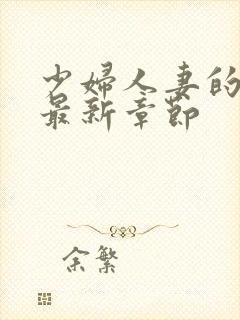 少婦人妻的
最新章節
余繁